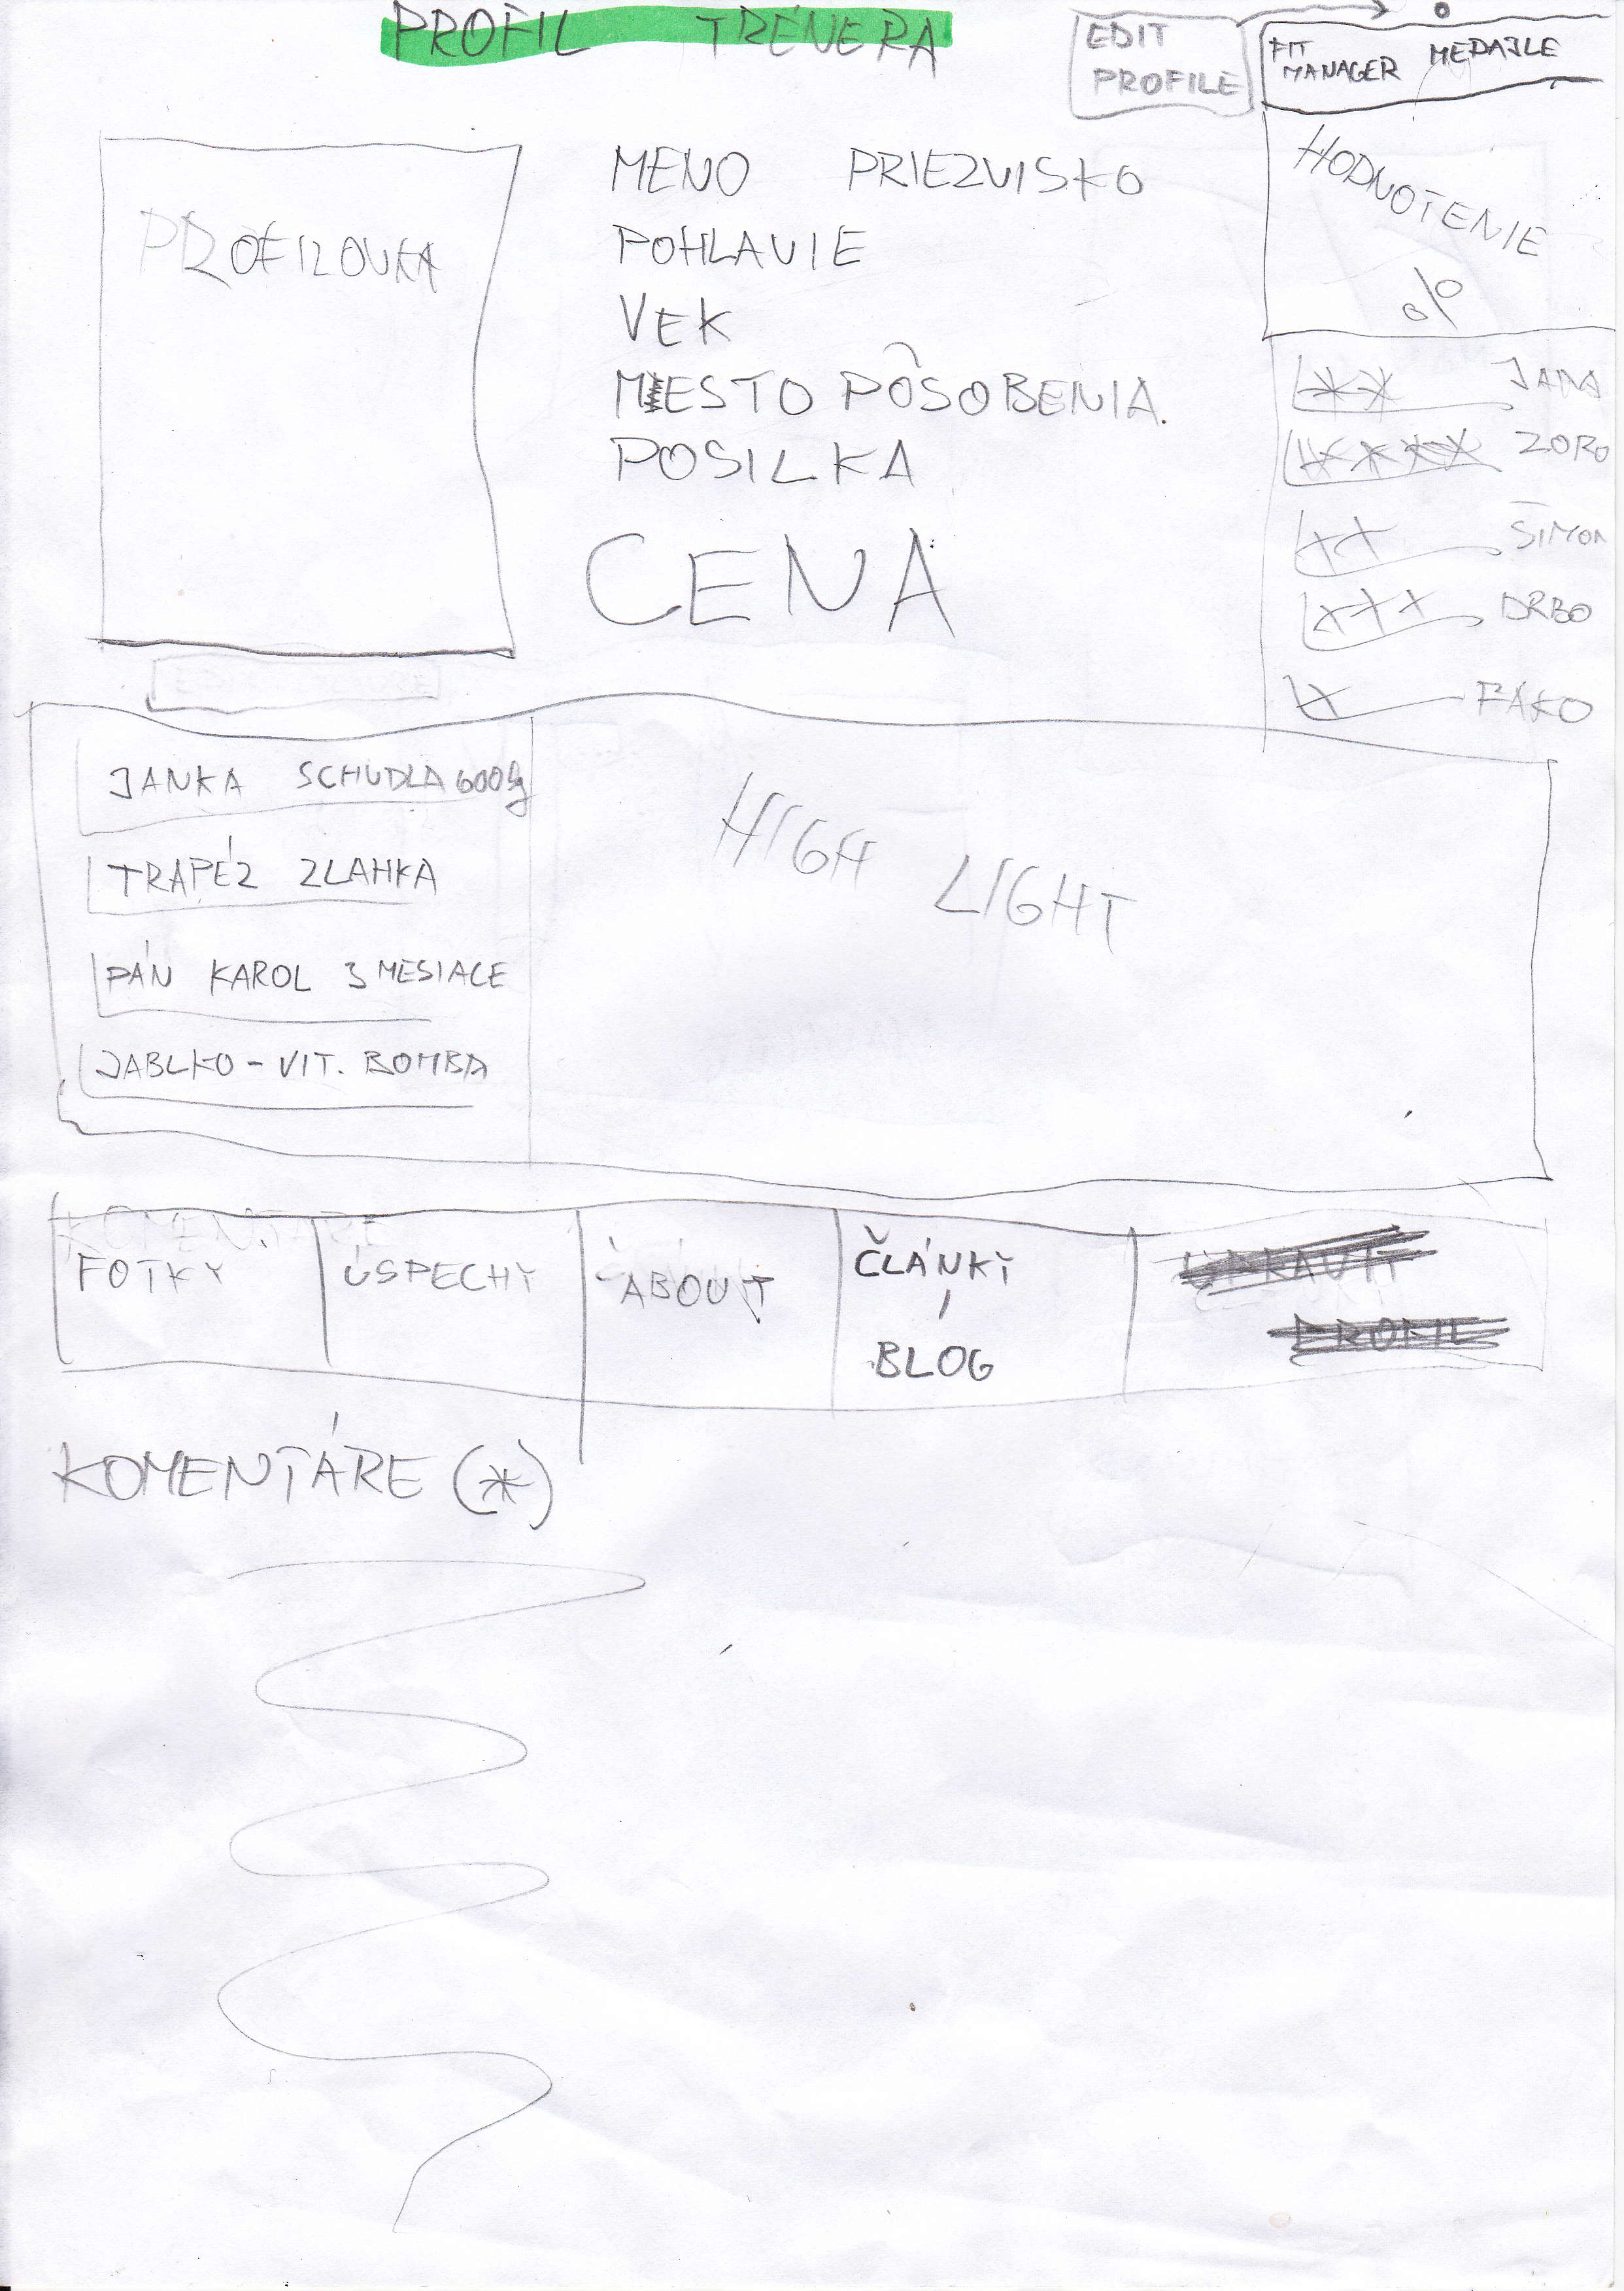 PROFIL TRÉNERA
EDIT
PROFILE
FIT
MANAGER
MEDAJLE
PROFILOVKA
MENO PRIEZVISKO
POHLAVIE
VEK
MIESTO PÔSOBENIA.
POSILKA
CENA
HODNOTENIE
%
JANA
ZORO
ŠIMON
DRBO
FAKO
JANKA SCHUDLA 600kg
TRAPÉZ ZLAHKA
PÁN KAROL 3 MESIACE
JABLKO - VIT. BOMBA
HIGH LIGHT
KOMENTÁRE
FOTKY
ÚSPECHY
ABOUT
ČLÁNKY
/
BLOG
UPRAVIT
PROFIL
KOMENTÁRE (*)